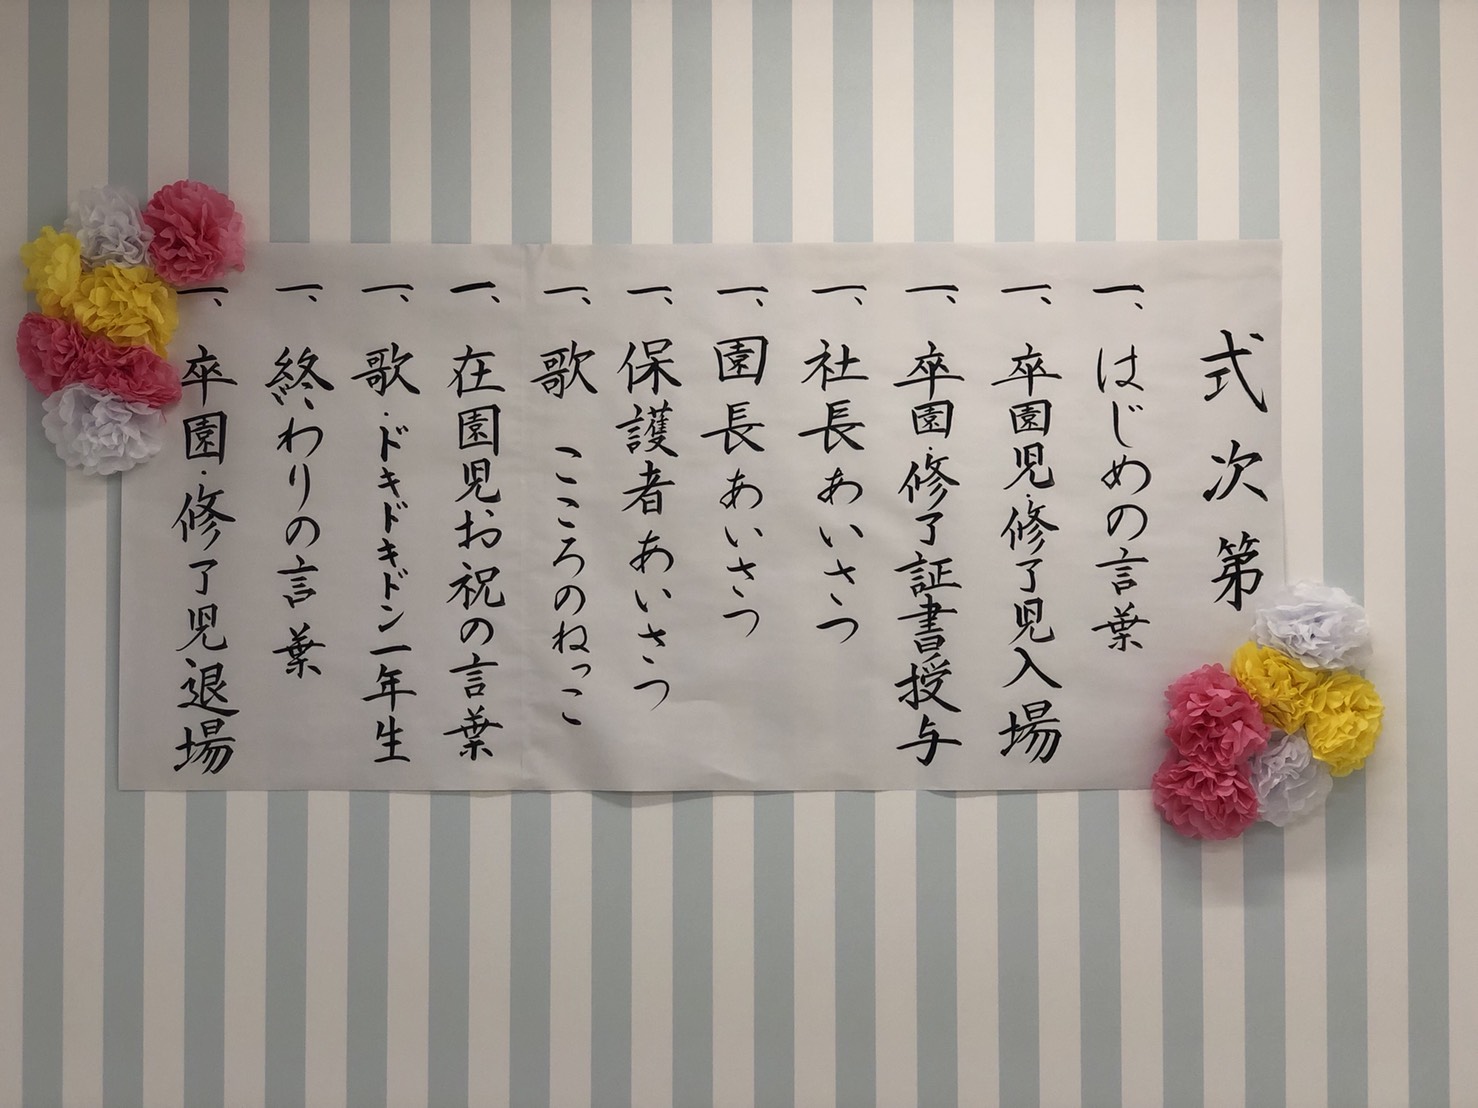 式次第
一、はじめの言葉
一、卒園児・修了児入場
一、卒園・修了証書授与
一、社長あいさつ
一、園長あいさつ
一、保護者あいさつ
一、歌 こころのねっこ
一、在園児お祝の言葉
一、歌・ドキドキドン一年生
一、終わりの言葉
一、卒園・修了児退場